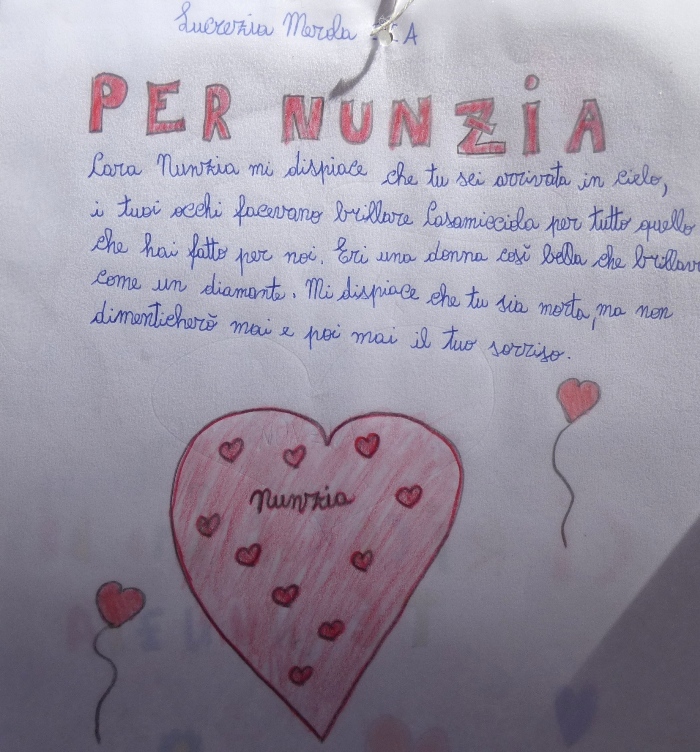 Lucrezia Merola A
PER NUNZIA
Cara Nunzia mi dispiace che tu sei arrivata in cielo,
i tuoi occhi facevano brillare Casamicciola per tutto quello
che hai fatto per noi. Eri una donna così bella che brillav
come un diamante. Mi dispiace che tu sia morta, ma non
dimenticherò mai e poi mai il tuo sorriso.
Nunzia